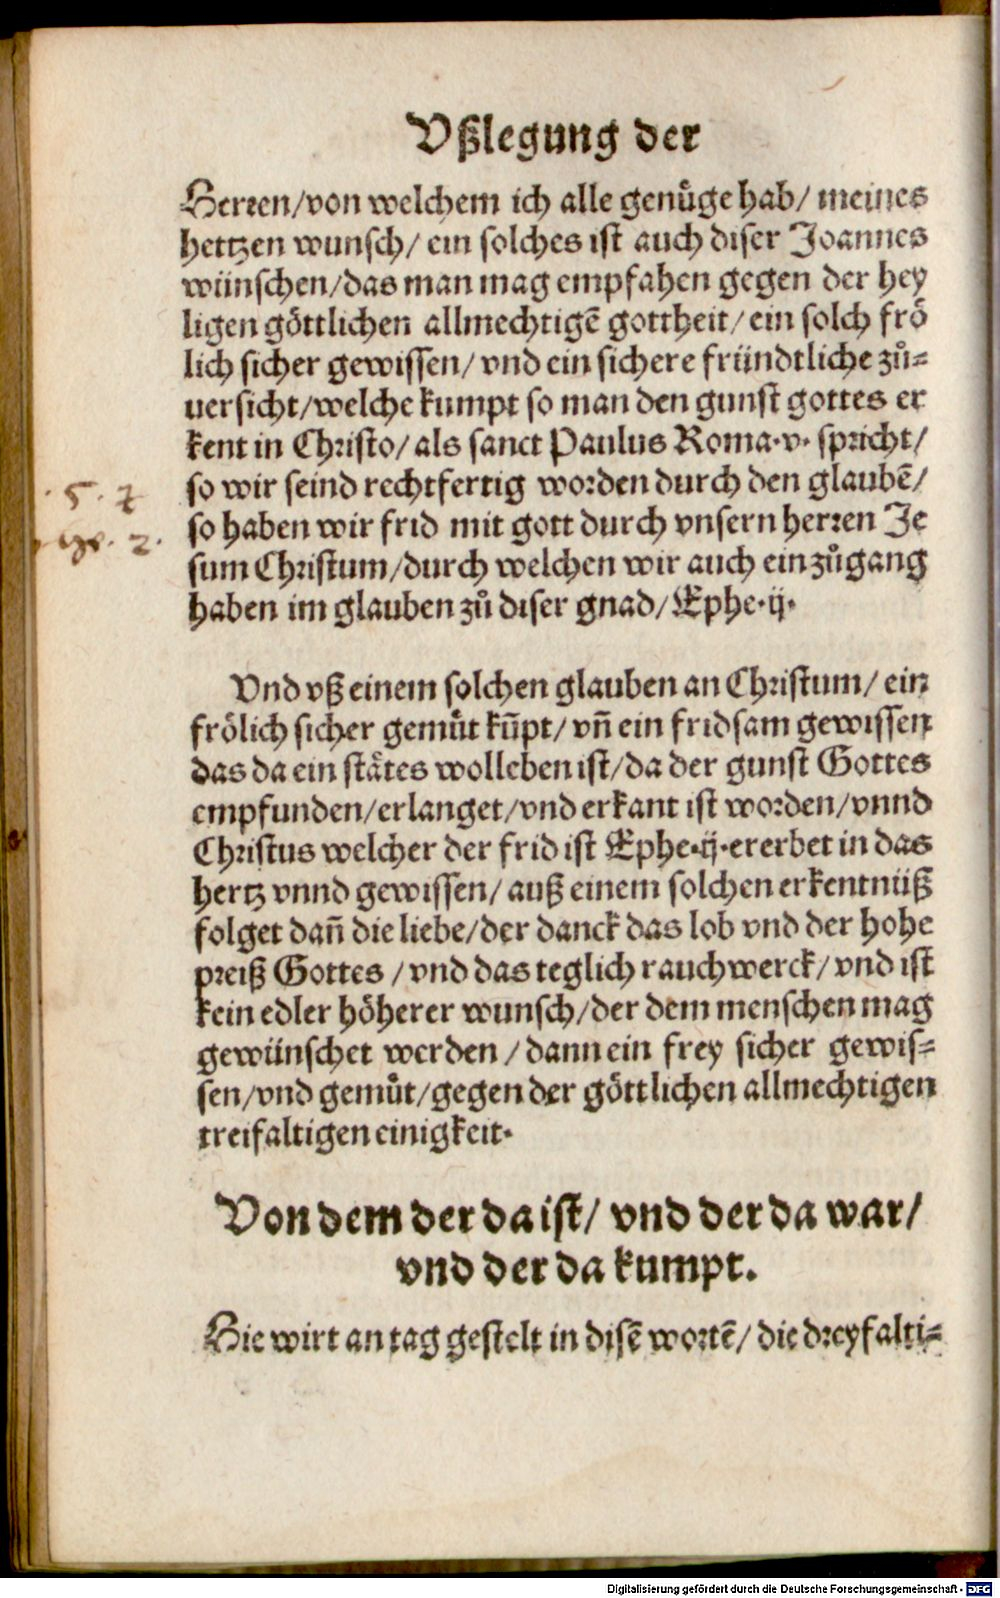 Vßlegung der
Herren/von welchem ich alle genuͤge hab/ meines
hertzen wunsch/ ein solches ist auch diser Joannes
wünschen/das man mag empfahen gegen der hey
ligen goͤttlichen allmechtigẽ gottheit/ein solch froͤ
lich sicher gewissen/ vnd ein sichere fründtliche zuͦ=
uersicht/welche kumpt so man den gunst gottes er
kent in Christo/ als sanct Paulus Roma.v. spricht/
so wir seind rechtfertig worden durch den glaubẽ/
so haben wir frid mit gott durch vnsern herren Je
sum Christum/durch welchen wir auch ein zuͦgang
haben im glauben zuͦ diser gnad/ Ephe.ij.
5.
2.
Vnd vß einem solchen glauben an Christum/ ein
froͤlich sicher gemuͤt kũpt/ vñ ein fridsam gewissen
das da ein staͤtes wolleben ist/da der gunst Gottes
empfunden/erlanget/vnd erkant ist worden/vnnd
Christus welcher der frid ist Ephe.ij.ererbet in das
hertz vnnd gewissen/ auß einem solchen erkentnüß
folget dañ die liebe/der danck das lob vnd der hohe
preiß Gottes /vnd das teglich rauchwerck/ vnd ist
kein edler hoͤherer wunsch/der dem menschen mag
gewünschet werden /dann ein frey sicher gewis=
sen/vnd gemuͤt/gegen der goͤttlichen allmechtigen
treifaltigen einigkeit.
Von dem der da ist/ vnd der da war/
vnd der da kumpt.
Hie wirt an tag gestelt in disẽ wortẽ/ die dreyfalti=
Digitalisierung gefördert durch die Deutsche Forschungsgemeinschaft - DFG